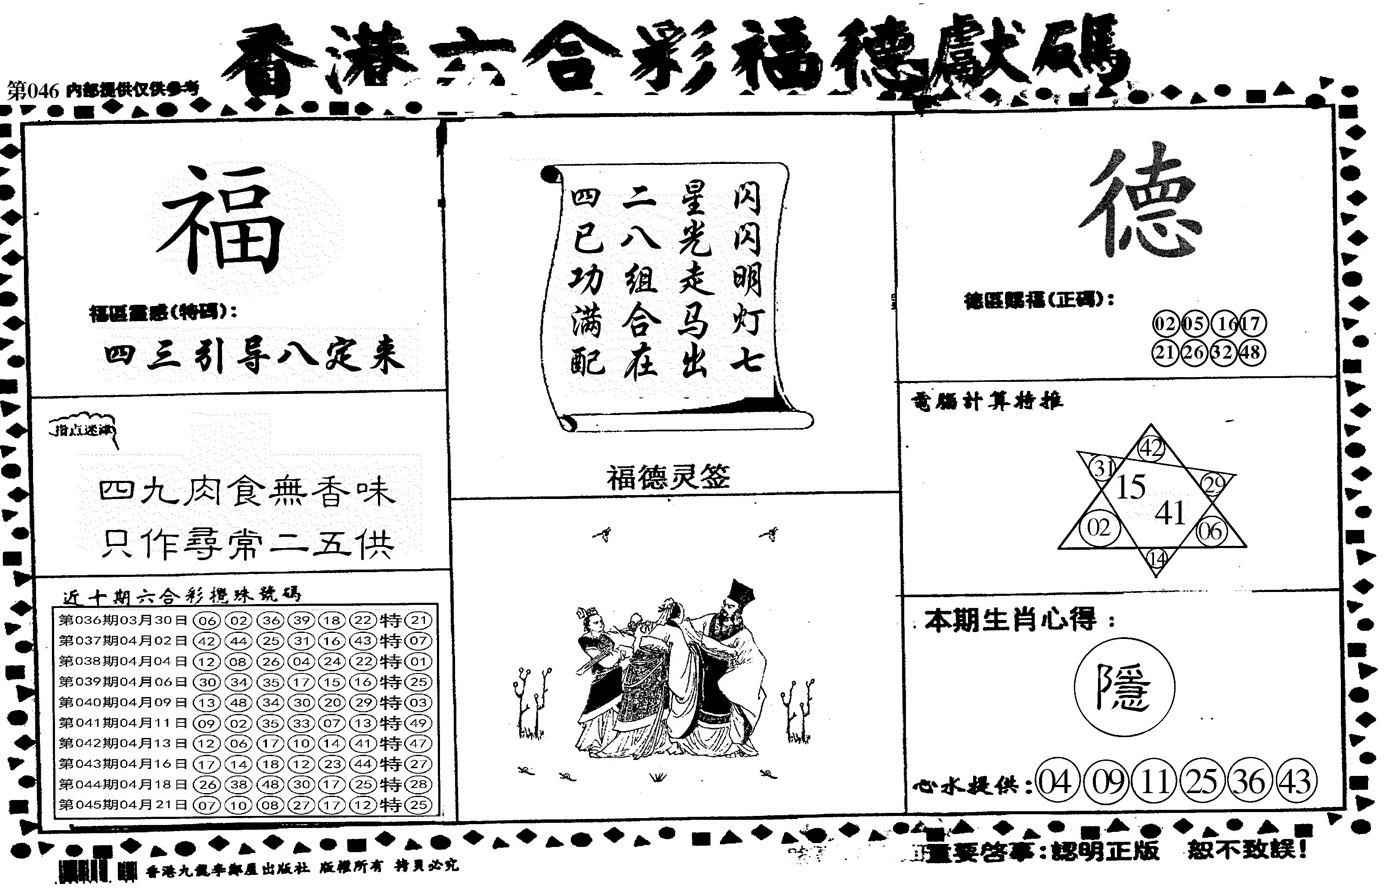 香港六合彩福德獻碼
第046 内部提供仅供參考
福
福區靈感(特碼):
四三引导八定来
指点迷津
四九肉食無香味
只作尋常二五供
近十期六合彩攪珠號碼
第036期03月30日 06 02 36 39 18 22 特 21
第037期04月02日 42 44 25 31 16 43 特 07
第038期04月04日 12 08 26 04 24 22 特 01
第039期04月06日 30 34 35 17 15 16 特 25
第040期04月09日 13 48 34 30 20 29 特 03
第041期04月11日 09 02 35 33 07 13 特 49
第042期04月13日 12 06 17 10 14 41 特 47
第043期04月16日 17 14 18 12 23 44 特 27
第044期04月18日 26 38 48 30 17 25 特 28
第045期04月21日 07 10 08 27 17 12 特 25
闪闪明灯七
星光走马出
二八组合在
四已功满配
福德灵签
德
德區賜福(正碼):
02 05 16 17
21 26 32 48
電腦計算特推
42
31
29
15
41
02
06
14
本期生肖心得:
隱
心水提供: 04 09 11 25 36 43
香港九龍李鄭屋出版社 版權所有 拷貝必究
重要啓事:認明正版 恕不致誤!